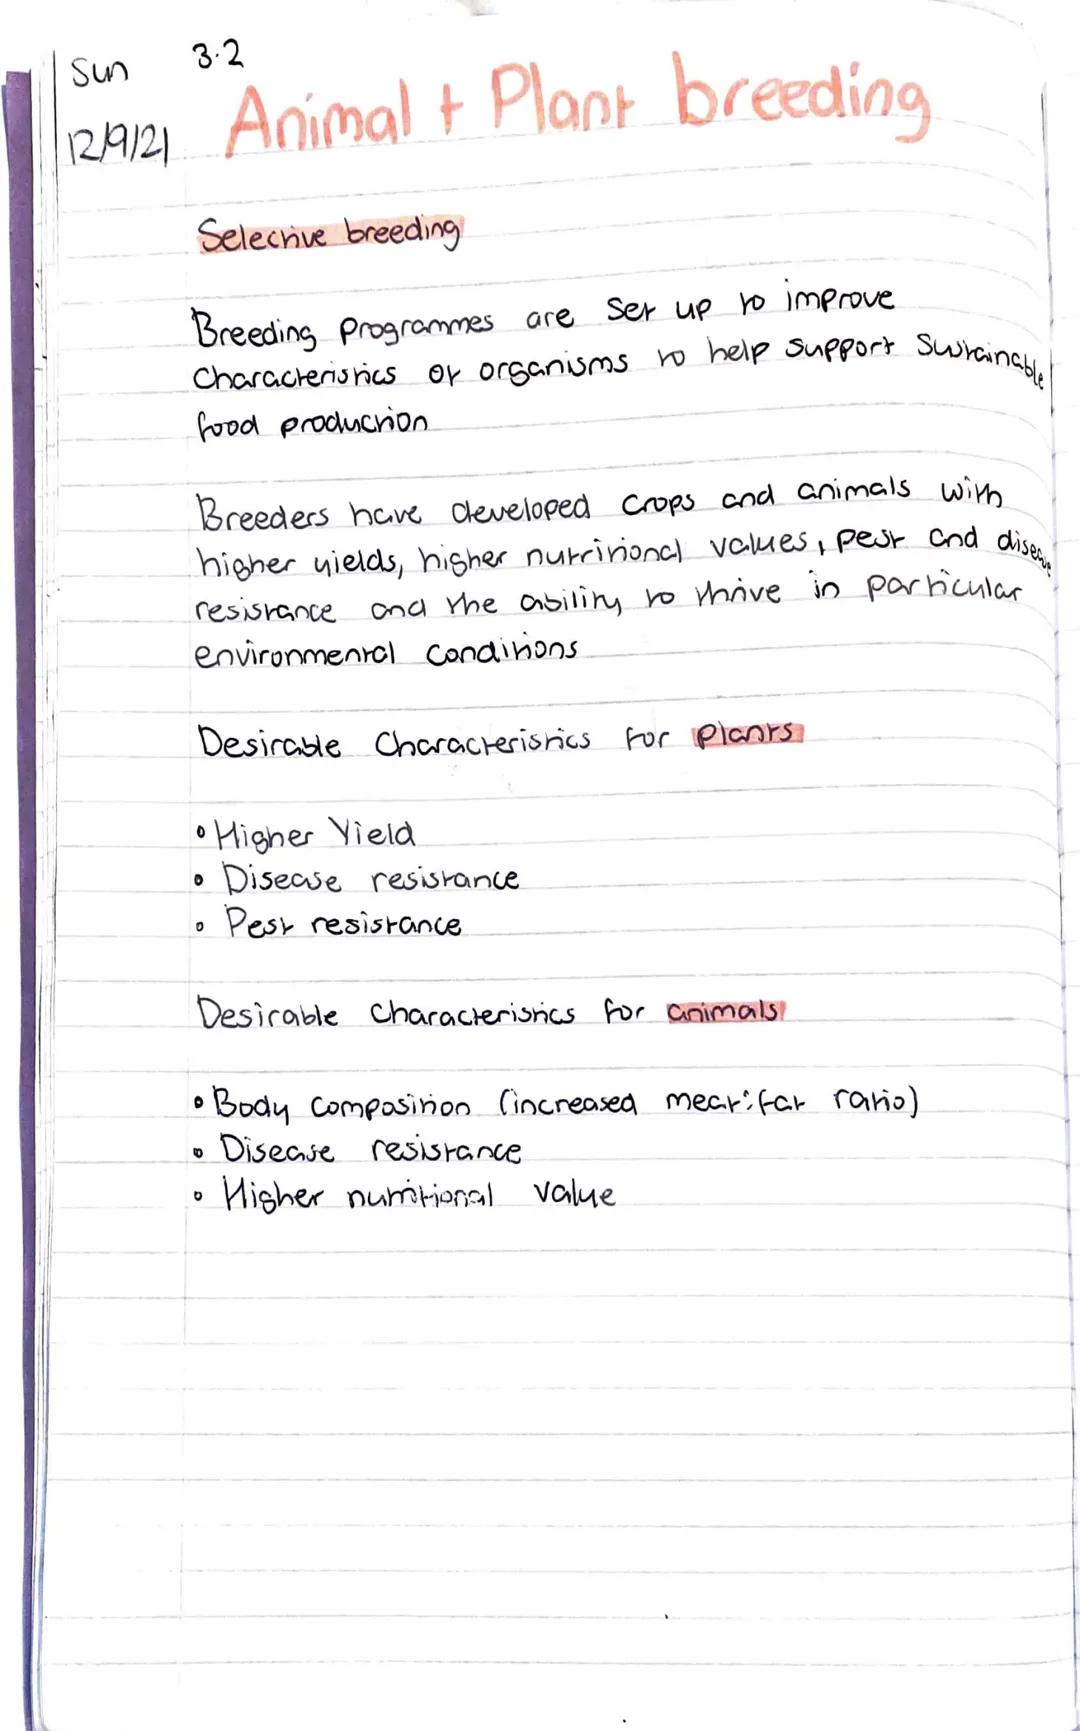 Sun 3.2
12/9/21 Animal + Plant breeding
Selective breeding
Breeding programmes are set up to improve
characteristics of organisms to help support sustainable
food production
Breeders have developed crops and animals with
higher yields, higher nutritional values, pest and disease
resistance and the ability to thrive in particular
environmental conditions
Desirable characteristics for plants
• Higher Yield
• Disease resistance
• Pest resistance
Desirable characteristics for animals
• Body composition (increased meat:fat ratio)
• Disease resistance
• Higher nutritional value